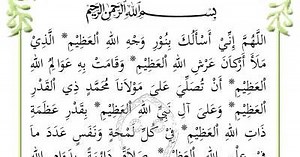 بِسْمِ اللهِ الرَّحْمٰنِ الرَّحِيْمِ
اَللّٰهُمَّ إِنِّيْ أَسْأَلُكَ بِنُوْرِ وَجْهِ اللهِ الْعَظِيْمِ * الَّذِيْ
مَلَأَ أَرْكَانَ عَرْشِ اللهِ الْعَظِيْمِ * وَقَامَتْ بِهِ عَوَالِمُ اللهِ
الْعَظِيْمِ * أَنْ تُصَلِّيَ عَلَى مَوْلَانَا مُحَمَّدٍ ذِي الْقَدْرِ
الْعَظِيْمِ * وَعَلَى آلِ نَبِيِّ اللهِ الْعَظِيْمِ * بِقَدْرِ عَظَمَةِ
ذَاتِ اللهِ الْعَظِيْمِ * فِيْ كُلِّ لَمْحَةٍ وَنَفَسٍ عَدَدَ مَا
فِيْ عِلْمِ اللهِ الْعَظِيْمِ * صَلَاةً دَائِمَةً بِدَوَامِ اللهِ